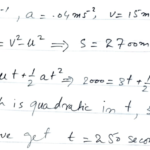 ⁻¹, a = .04 ms⁻², v = 15 m
= v² - u² ⇒ s = 2700m
ut + ½ at² ⇒ 2000 = 3t + ½
h is quadratic in t,
we get t = 250 second